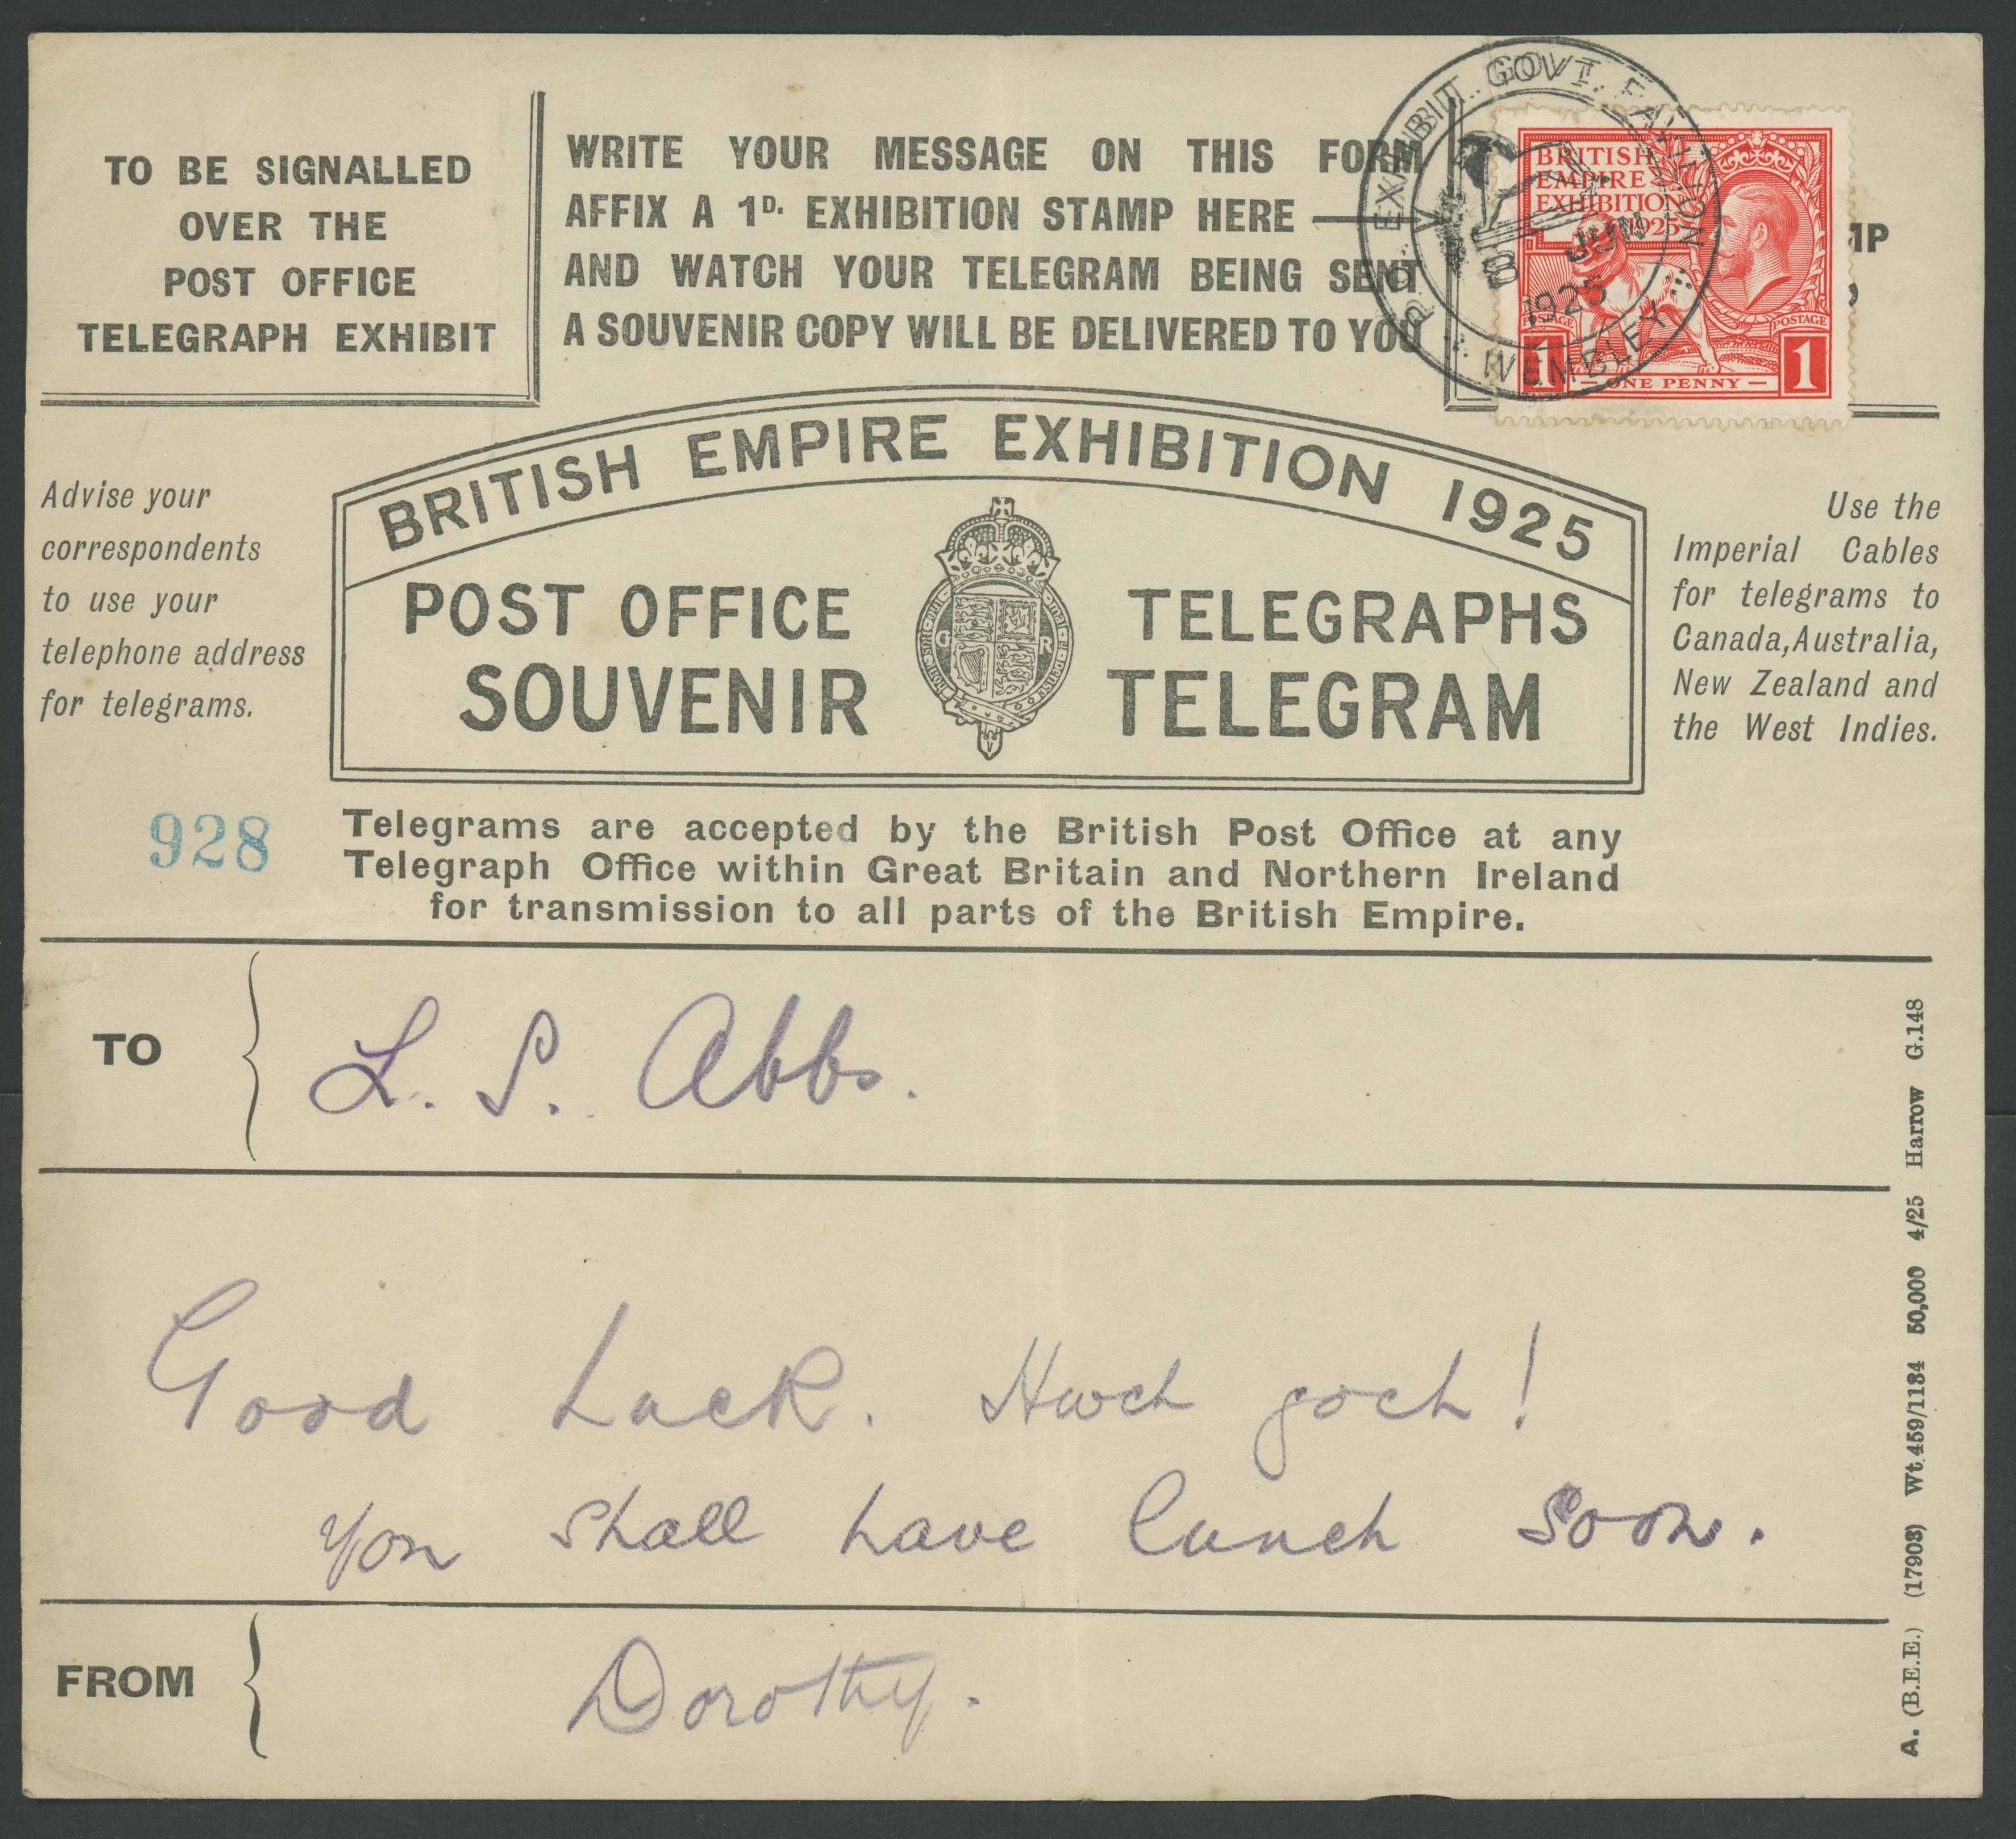 TO BE SIGNALLED
OVER THE
POST OFFICE
TELEGRAPH EXHIBIT
WRITE YOUR MESSAGE ON THIS FORM
AFFIX A 1D. EXHIBITION STAMP HERE
AND WATCH YOUR TELEGRAM BEING SENT
A SOUVENIR COPY WILL BE DELIVERED TO YOU
P.O. EXHIBIT. GOVT. PAVILION
8 JUN
1925
WEMBLEY
BRITISH
EMPIRE
EXHIBITION
1925
POSTAGE POSTAGE
1 ONE PENNY 1
BRITISH EMPIRE EXHIBITION 1925
POST OFFICE TELEGRAPHS
SOUVENIR TELEGRAM
G R
Advise your
correspondents
to use your
telephone address
for telegrams.
Use the
Imperial Cables
for telegrams to
Canada, Australia,
New Zealand and
the West Indies.
928
Telegrams are accepted by the British Post Office at any
Telegraph Office within Great Britain and Northern Ireland
for transmission to all parts of the British Empire.
TO
L. S. Abbs.
Good Luck. Hwch goch!
You shall have lunch soon.
FROM
Dorothy.
A. (B.E.E.) (17903) Wt.459/1134 50,000 4/25 Harrow G.148